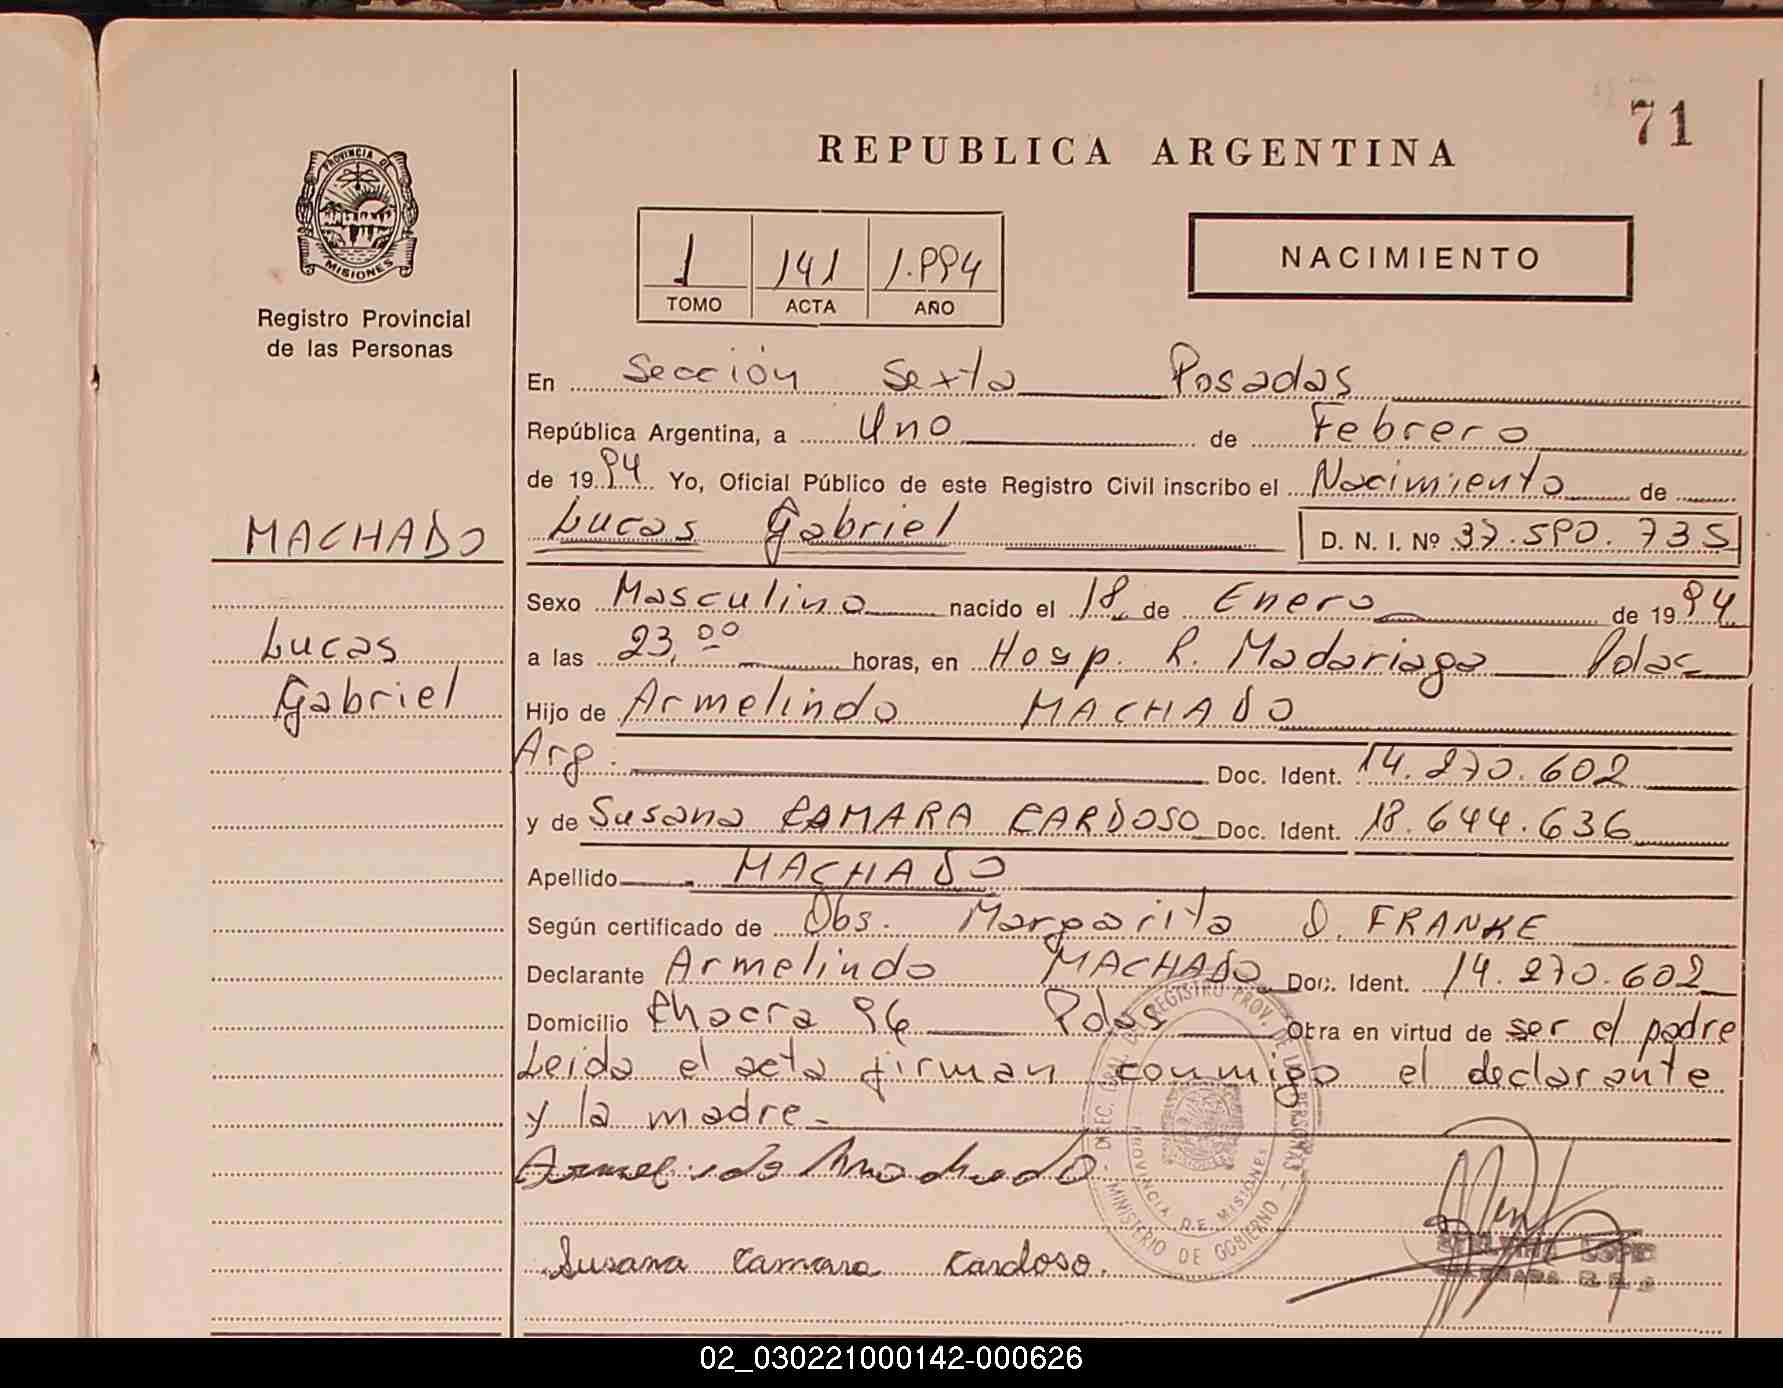 71
REPUBLICA ARGENTINA
PROVINCIA DE
MISIONES
Registro Provincial
de las Personas
1 141 1.994
TOMO ACTA AÑO
NACIMIENTO
En Sección Sexta Posadas
República Argentina, a Uno de Febrero
de 1994 Yo, Oficial Público de este Registro Civil inscribo el Nacimiento de
MACHADO
Lucas Gabriel D. N. I. Nº 37.590.735
Sexo Masculino nacido el 18 de Enero de 1994
Lucas
a las 23,00 horas, en Hosp. R. Madariaga Pdas
Gabriel
Hijo de Armelindo MACHADO
Arg. Doc. Ident. 14.270.602
y de Susana CAMARA CARDOSO Doc. Ident. 18.644.636
Apellido MACHADO
Según certificado de Obs. Margarita D. FRANKE
Declarante Armelindo MACHADO Doc. Ident. 14.270.602
Domicilio Chacra 96 Pdas Obra en virtud de ser el padre
Leida el acta firman conmigo el declarante
y la madre.-
Armelindo Machado
Susana Camara Cardoso.
DIREC. GRAL. DEL REGISTRO PROV. DE LAS PERSONAS
PROVINCIA DE MISIONES
MINISTERIO DE GOBIERNO
LOPEZ
02_030221000142-000626